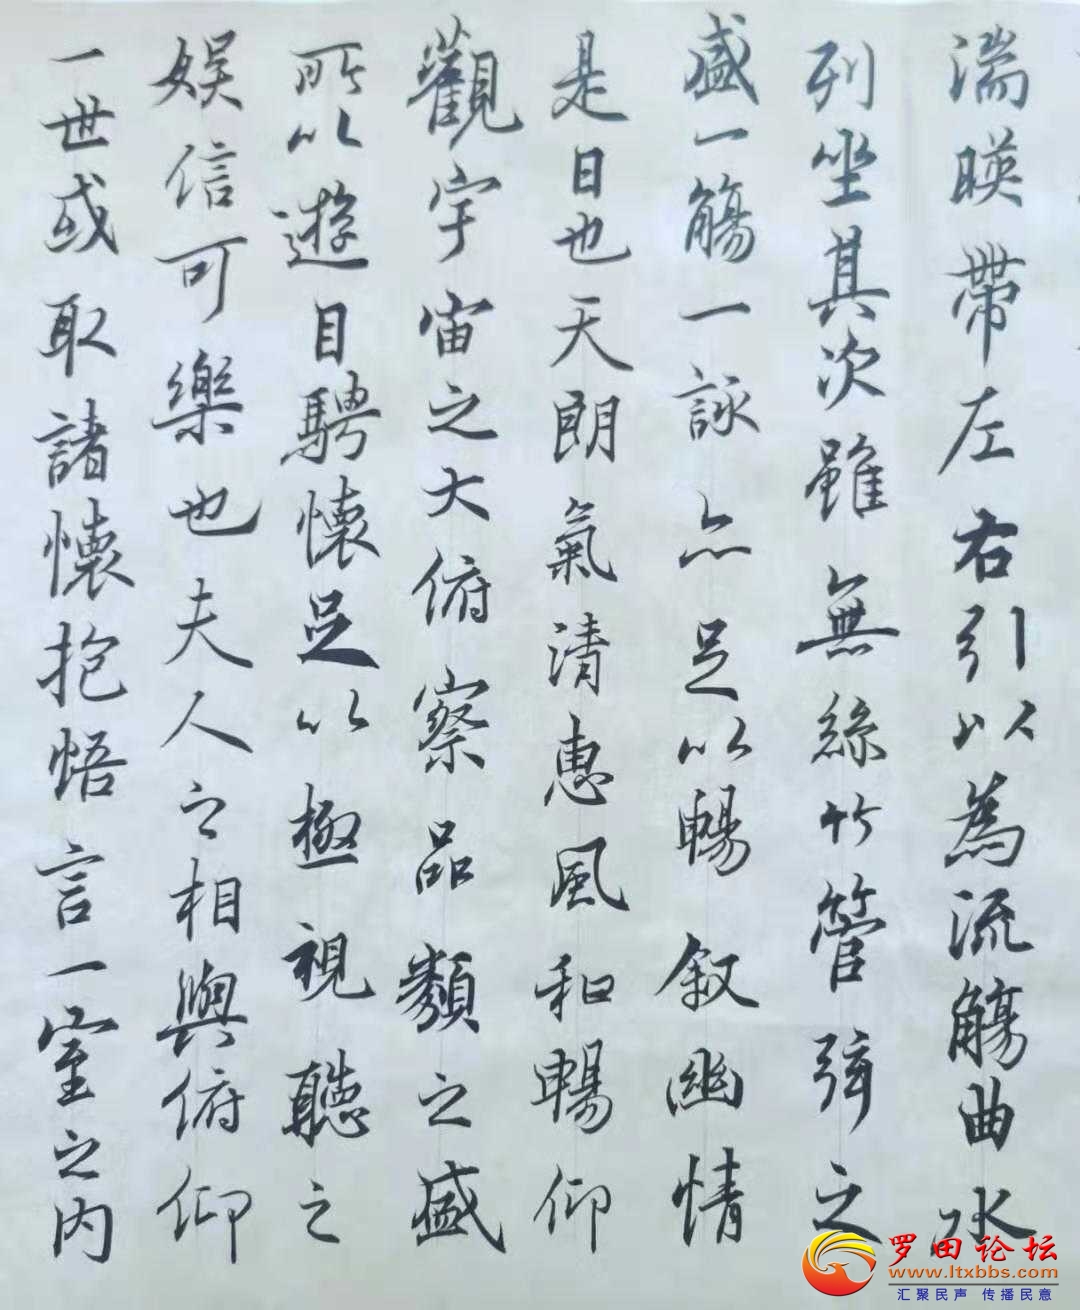 湍暎帶左右引以為流觴曲水
列坐其次雖無絲竹管弦之
盛一觴一詠亦足以暢敘幽情
是日也天朗氣清惠風和暢仰
觀宇宙之大俯察品類之盛
所以遊目騁懷足以極視聽之
娛信可樂也夫人之相與俯仰
一世或取諸懷抱悟言一室之內
罗田论坛
www.ltxbbs.com
汇聚民声 传播民意